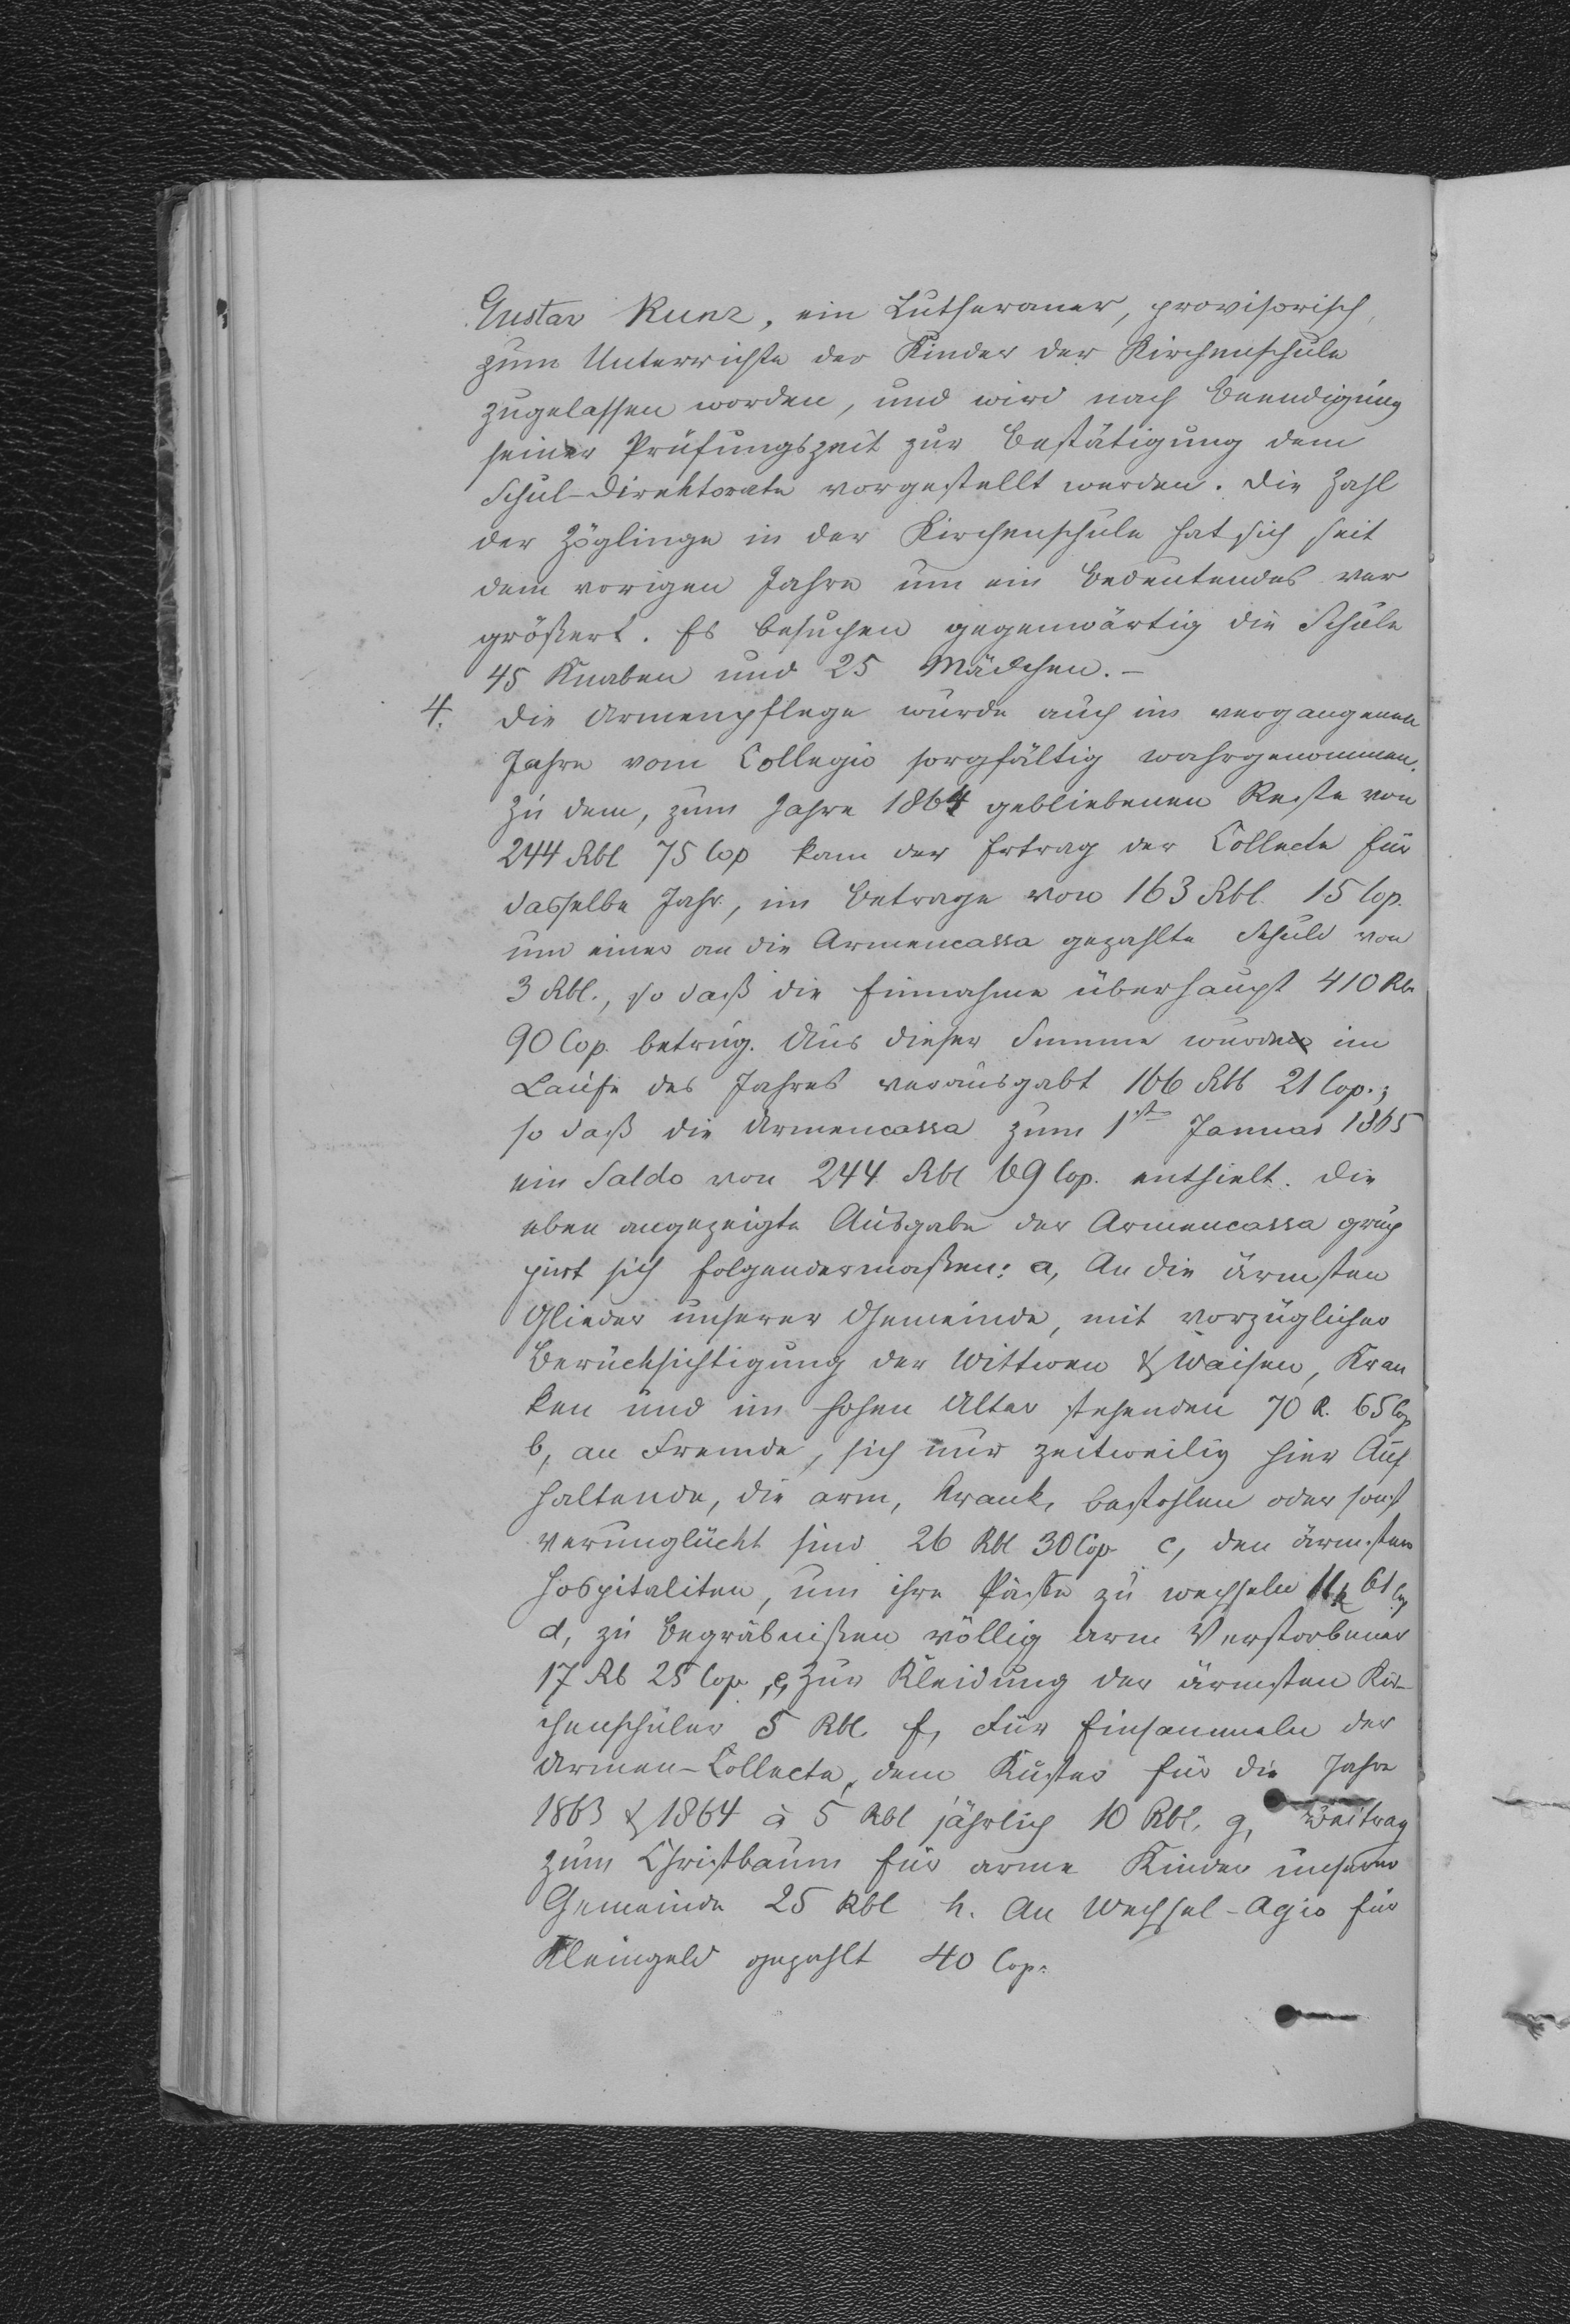 Gustav Kunz, ein Lutheraner, provisorisch,
zum Unterrichte der Kinder der Kirchenschule
zugelassen worden, und wird nach Beendigung
seiner Prüfungszeit zur Bestätigung dem
Schul-Direktorate vorgestellt werden. Die Zahl
der Zöglinge in der Kirchenschule hat sich seit
dem vorigen Jahre um ein Bedeutendes ver
größert. Es besuchen gegenwärtig die Schule
45 Knaben und 25 Mädchen.-
4. Die Armenpflege wurde auch im vergangenen
Jahre vom Collegio sorgfältig wahrgenommen.
Zu dem, zum Jahre 1864 gebliebenen Reste von
244 Rbl 75 Cop kam der Ertrag der Collecte für
dasselbe Jahr, im Betrage von 163 Rbl. 15 Cop.
um einer an die Armencassa gezahlte Schuld von
3 Rbl., so daß die Einnahme überhaupt 410 Rb.
90 Cop. betrug. Aus dieser Summe wurden im
Laufe des Jahres verausgabt 166 Rbl 21 Cop.;
so daß die Armencassa zum 1st Januar 1865
ein Saldo von 244 Rbl 69 Cop. enthielt. Die
eben angezeigte Ausgabe der Armencassa grup
pirt sich folgendermaßen: a, An die ärmsten
Glieder unserer Gemeinde, mit vorzüglicher
Berücksichtigung der Wittwen & Waisen, Kran
ken und im hohen Alter stehenden 70 R. 65 Cop
b, an Fremde, sich nur zeitweilig hier Auf
haltende, die arm, krank, bestohlen oder sonst
verunglückt sind 26 Rbl 30 Cop c, den ärmsten
Hospitaliten, um ihre Pässe zu wechseln 11 R 61 Cop
d, zu Begräbnißen völlig arm Verstorbener
17 Rb 25 Cop, e, zur Kleidung der ärmsten Kir-
chenschüler 5 Rbl. f, Für Einsammeln der
Armen-Collecte, dem Küster für die Jahre
1863 & 1864 à 5 Rbl jährlich 10 Rbl. g, Beitrag
zum Christbaum für arme Kinder unserer
Gemeinde 25 Rbl h. An Wechsel-Agio für
Kleingeld gezahlt 40 Cop.